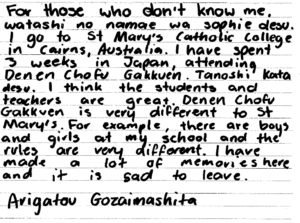 For those who don't know me,
watashi no namae wa sophie desu.
I go to St Mary's Catholic College
in Cairns, Australia. I have spent
3 weeks in Japan, attending
Denen Chofu Gakkuen. Tanoshi kata
desu. I think the students and
teachers are great. Denen Chofu
Gakkven is very different to St
Mary's. For example, there are boys
and girls at my school and the
rules are very different. I have
made a lot of memories here
and it is sad to leave.
Arigatou Gozaimashita